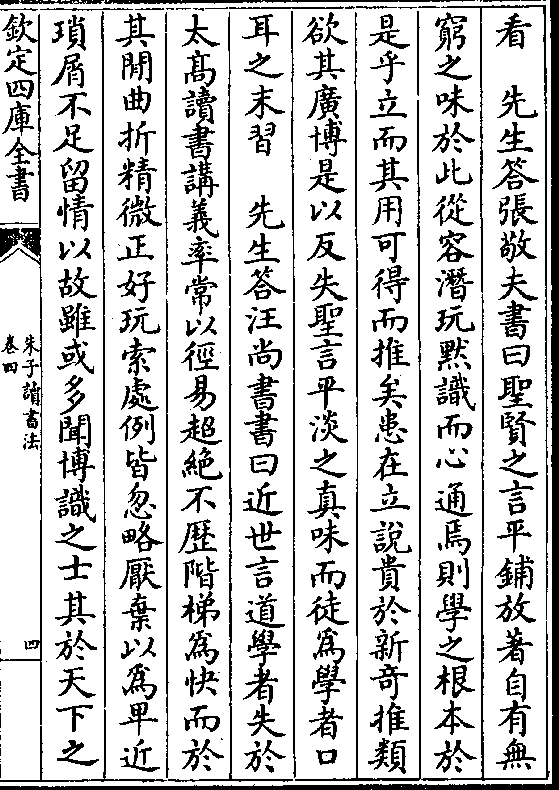 看　先生答張敬夫書曰聖賢之言平鋪放著自有無
窮之味於此從容潛玩默識而心通焉則學之根本於
是乎立而其用可得而推矣患在立說貴於新奇推類
欲其廣博是以反失聖言平淡之真味而徒為學者口
耳之末習　先生答汪尚書書曰近世言道學者失於
太髙讀書講義率常以徑易超絶不歴階梯為快而於
其閒曲折精微正好玩索處例皆忽略厭棄以為卑近
瑣屑不足留情以故雖或多聞博識之士其於天下之
欽定四庫全書
朱子讀書法
卷四
四